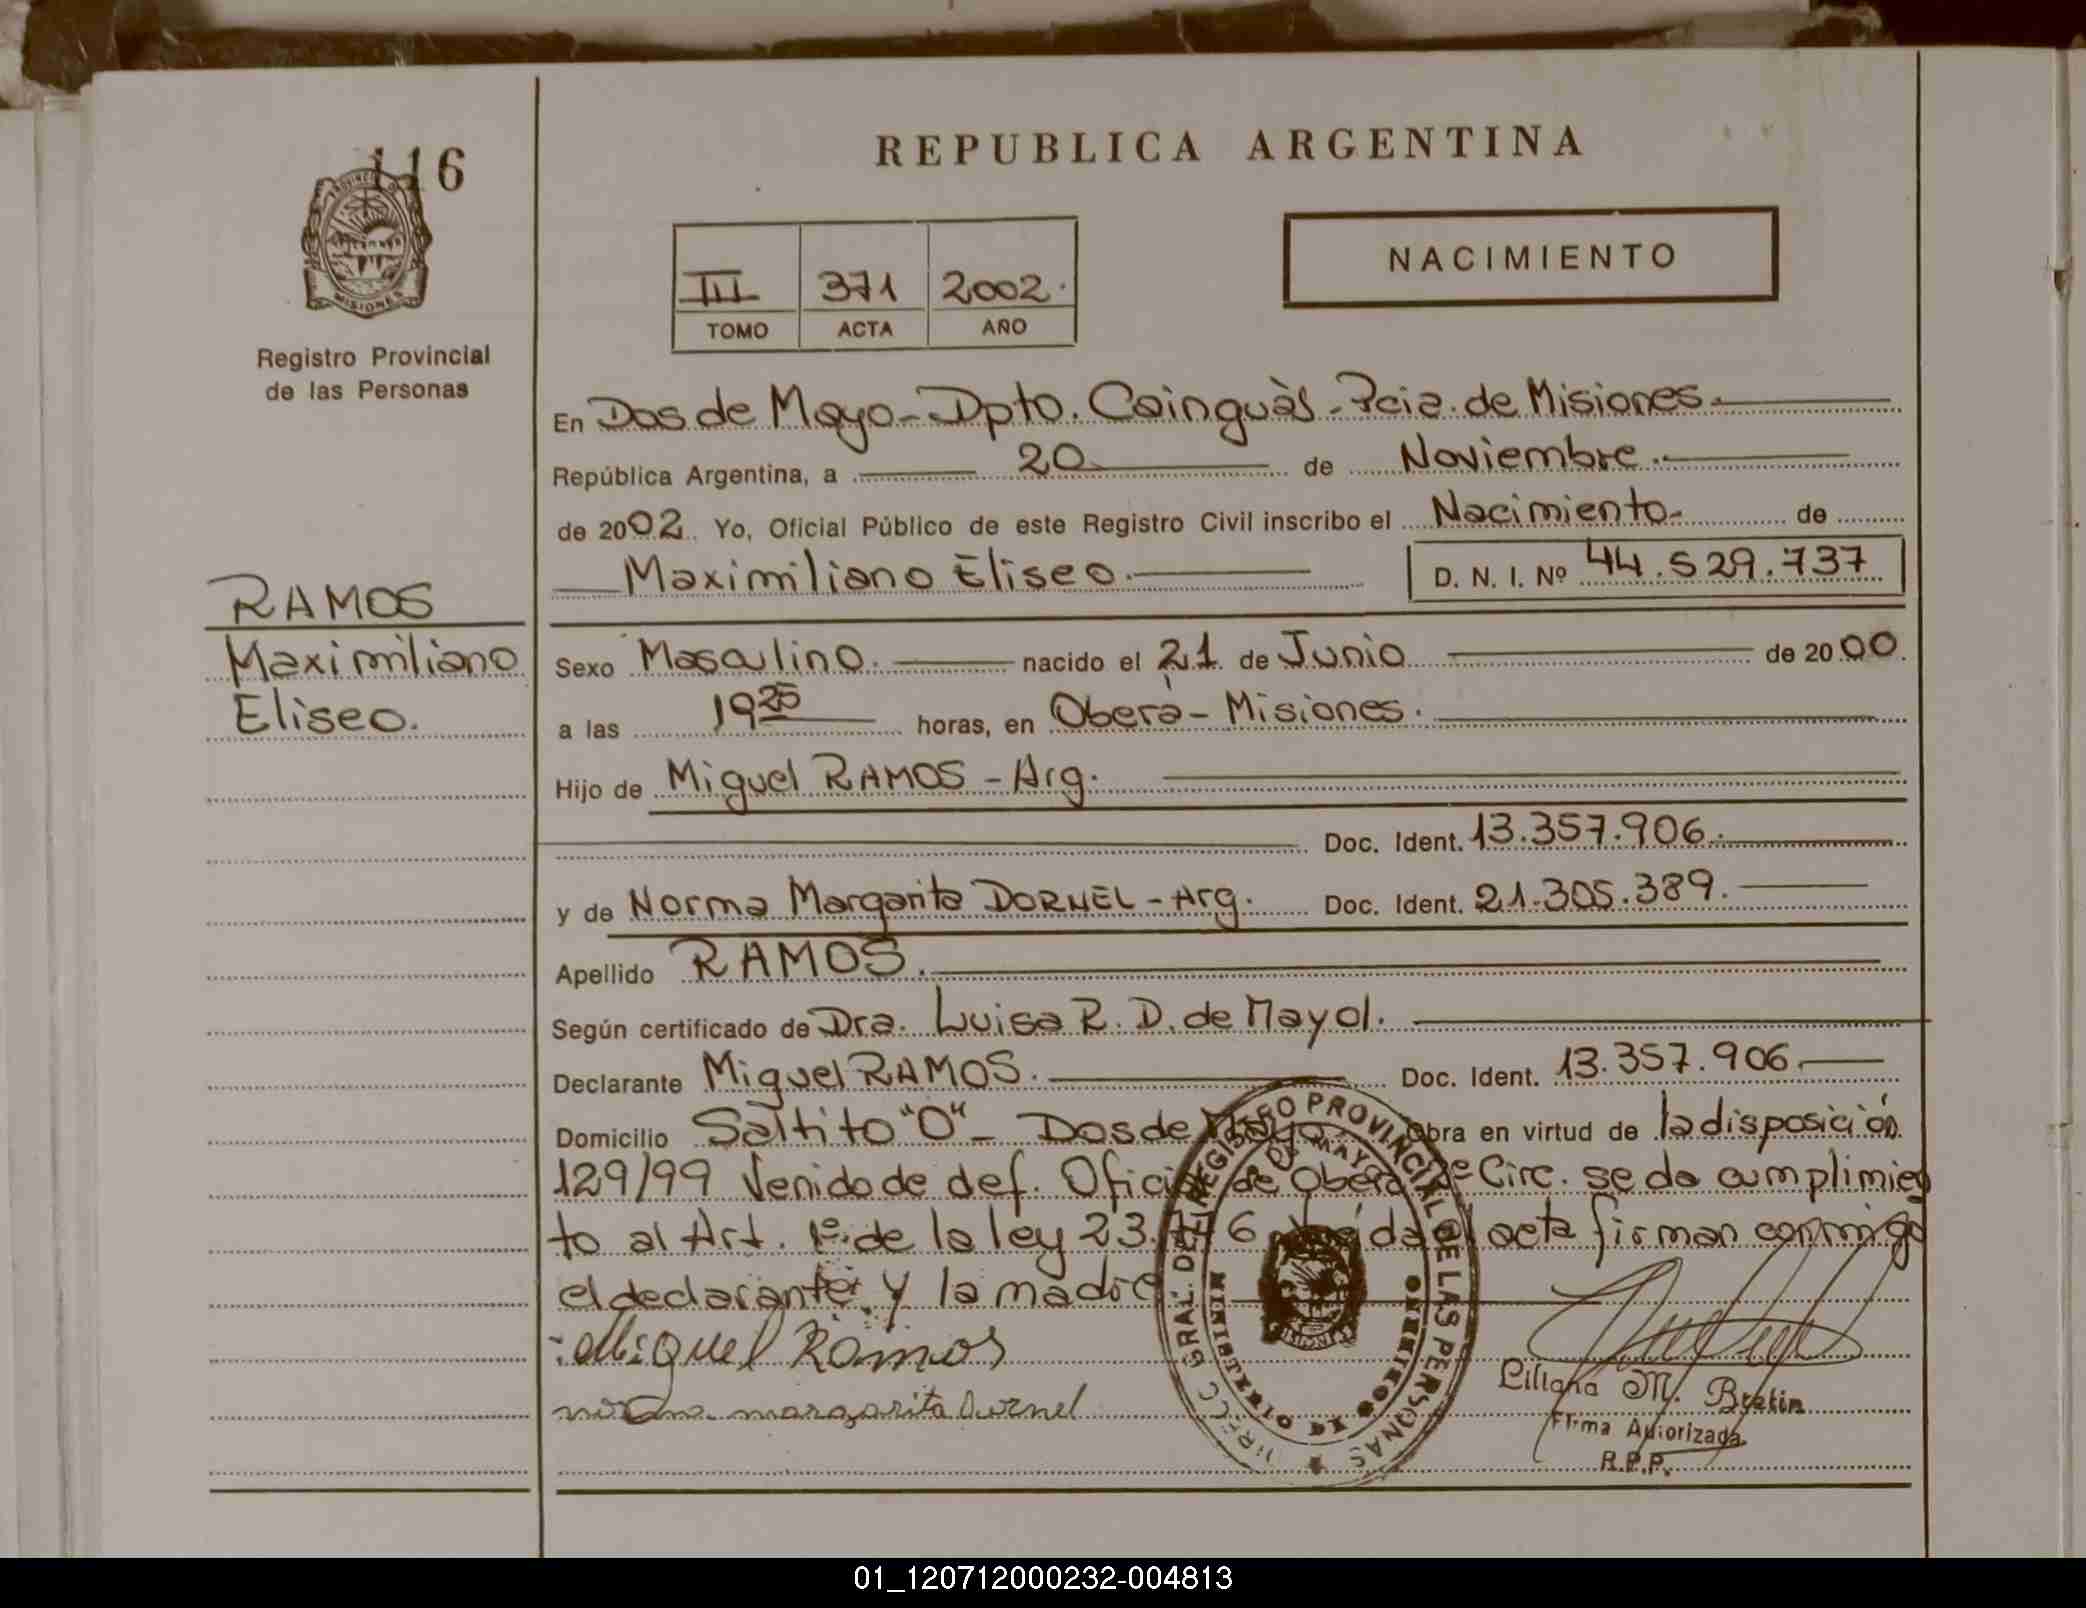 116
PROVINCIA DE
MISIONES
Registro Provincial
de las Personas
RAMOS
Maximiliano
Eliseo.
REPUBLICA ARGENTINA
NACIMIENTO
III 371 2002.
TOMO ACTA AÑO
En Dos de Mayo - Dpto. Cainguàs - Pcia. de Misiones.
República Argentina, a 20 de Noviembre.
de 2002. Yo, Oficial Público de este Registro Civil inscribo el Nacimiento- de
Maximiliano Eliseo. D. N. I. Nº 44.529.737
Sexo Masculino. nacido el 21 de Junio de 2000.
a las 19 25 horas, en Oberà - Misiones.
Hijo de Miguel RAMOS - Arg.
Doc. Ident. 13.357.906.
y de Norma Margarita DORNEL - Arg. Doc. Ident. 21.305.389.
Apellido RAMOS.
Según certificado de Dra. Luisa R. D. de Mayol.
Declarante Miguel RAMOS. Doc. Ident. 13.357.906
Domicilio Saltito "O" - Dos de Mayo. Obra en virtud de la disposición
129/99 Venido de def. Oficial de Oberá Circ. se da cumplimien
to al Art. 1º de la ley 23. 6 leída el acta firman conmigo
el declarante y la madre
Miguel Ramos
norma margarita Durnel
DIRECC GRAL. DEL REGISTRO PROVINCIAL DE LAS PERSONAS
MINISTERIO DE GOBIERNO
Liliana M. Bretin
Firma Autorizada
R.P.P.
01_120712000232-004813